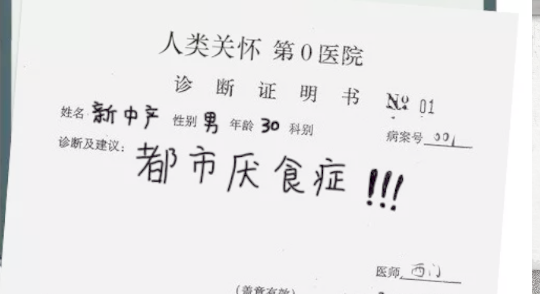 人类关怀 第0医院
诊断证明书 No 01
姓名 新中产 性别 男 年龄 30 科别 病案号 001
诊断及建议: 都市厌食症!!!
医师 西门
(盖章有效)